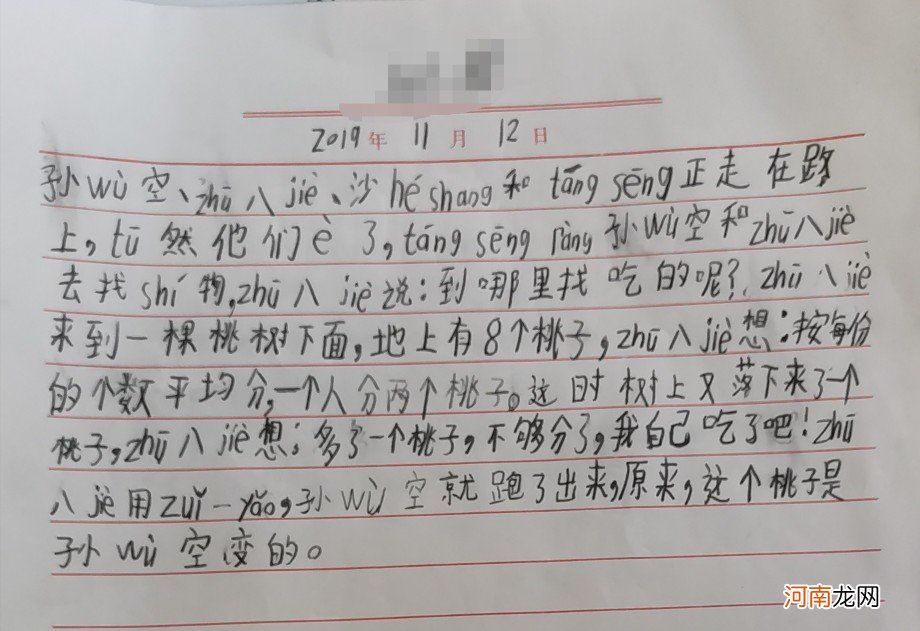 2019年 11月 12日
孙wù空、zhū八jiè、沙hé shang和táng sēng正走在路
上,tū然他们è了,táng sēng ràng孙wù空和zhū八jiè
去找shí物,zhū八jiè说:到哪里找吃的呢?zhū八jiè
来到一棵桃树下面,地上有8个桃子,zhū八jiè想:按每份
的个数平均分,一个人分两个桃子。这时树上又落下来了一个
桃子,zhū八jiè想:多了一个桃子,不够分了,我自己吃了吧!zhū
八jiè用zuǐ一yǎo,孙wù空就跑了出来,原来,这个桃子是
孙wù空变的。
河南龙网